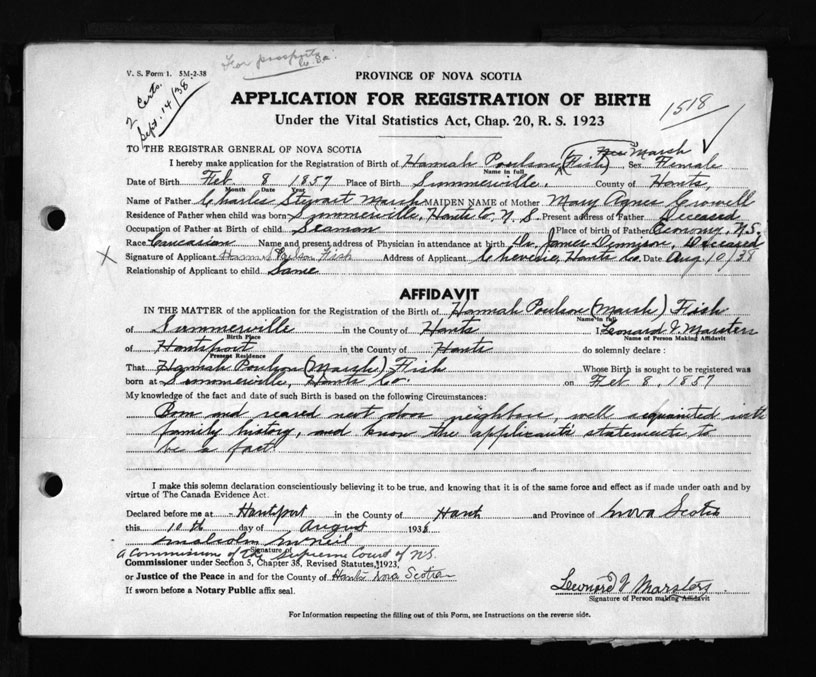 V. S. Form 1. 5M-2-38
For passport
2 Certs.
Sept. 14/38
PROVINCE OF NOVA SCOTIA
APPLICATION FOR REGISTRATION OF BIRTH
1518
Under the Vital Statistics Act, Chap. 20, R. S. 1923
TO THE REGISTRAR GENERAL OF NOVA SCOTIA
nee Marsh
I hereby make application for the Registration of Birth of Hannah Poulson (Fish) Sex Female
Name in full
Date of Birth Feb 8 1857 Place of Birth Summerville, County of Hants,
Month Date Year
Name of Father Charles Stewart Marsh MAIDEN NAME of Mother Mary Agnes Crowell
Residence of Father when child was born Summerville, Hants Co, N. S. Present address of Father Deceased
Occupation of Father at Birth of child Seaman Place of birth of Father Economy, N.S.
Race Caucasian Name and present address of Physician in attendance at birth Dr. James Dennison, Deceased
X Signature of Applicant Hannah Poulson Fish Address of Applicant Cheverie, Hants Co. Date Aug 10/38
Relationship of Applicant to child Same
AFFIDAVIT
IN THE MATTER of the application for the Registration of the Birth of Hannah Poulson (Marsh) Fish
Name in full
of Summerville in the County of Hants I Leonard V. Marsters
Birth Place Name of Person Making Affidavit
of Hantsport in the County of Hants do solemnly declare :
Present Residence
That Hannah Poulson (Marsh) Fish Whose Birth is sought to be registered was
born at Summerville, Hants Co. on Feb 8, 1857
My knowledge of the fact and date of such Birth is based on the following Circumstances:
Born and reared next door neighbour, well acquainted with
family history, and know the applicants statements to
be a fact.
I make this solemn declaration conscientiously believing it to be true, and knowing that it is of the same force and effect as if made under oath and by
virtue of The Canada Evidence Act.
Declared before me at Hantsport in the County of Hants and Province of Nova Scotia
this 10th day of August 1938
Malcolm McNeil
Signature of
A Commission of The Supreme Court of N.S.
Commissioner under Section 5, Chapter 38, Revised Statutes, 1923,
or Justice of the Peace in and for the County of Hants Nova Scotia
If sworn before a Notary Public affix seal.
Leonard V Marsters
Signature of Person making Affidavit
For Information respecting the filling out of this Form, see Instructions on the reverse side.